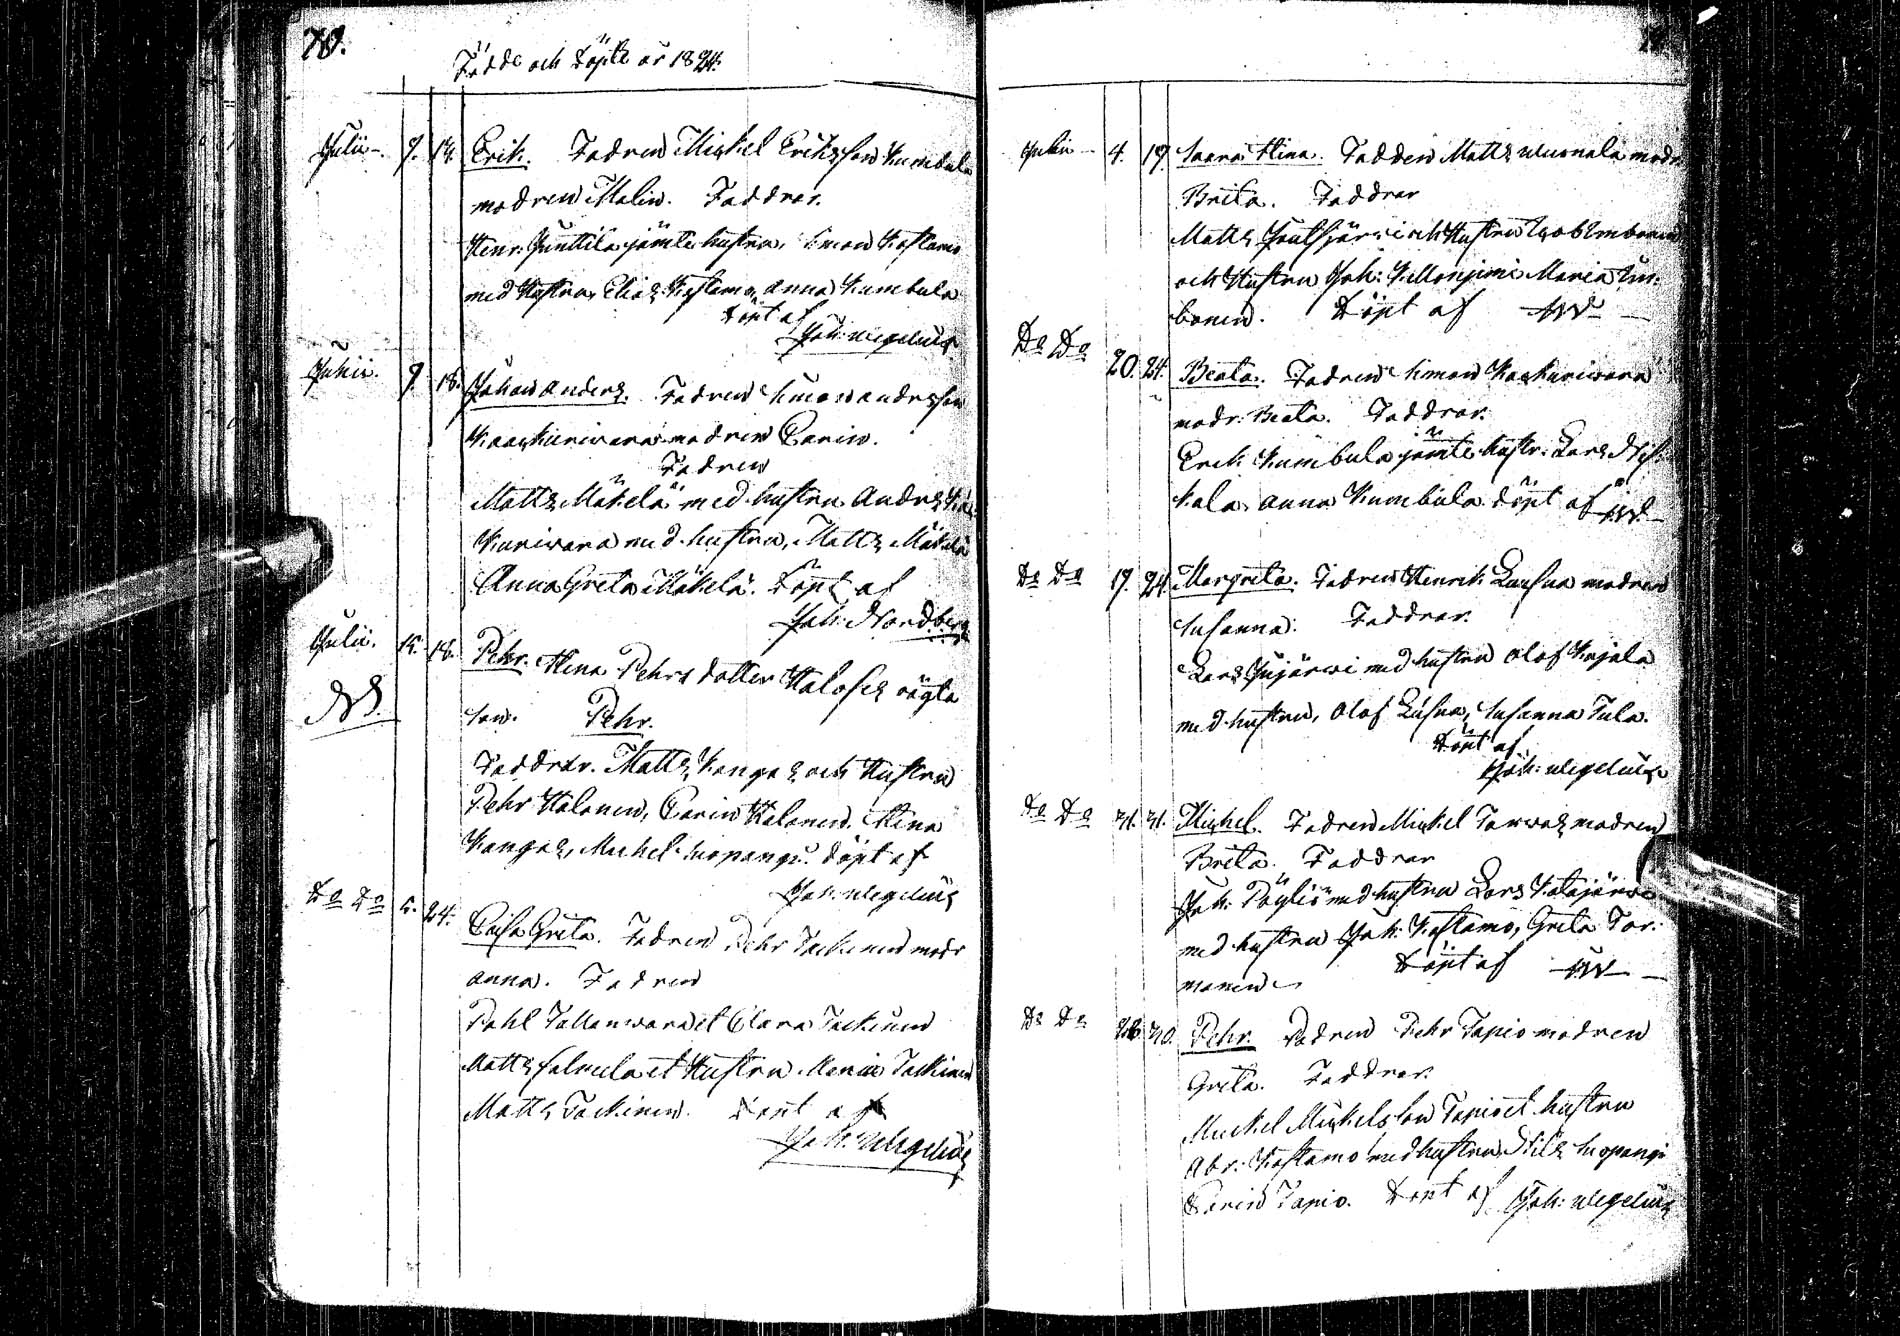 70.
Födde och Döpte år 1824.
Julii. 9. 18. Erik. Fadren Mickel Eriksson Kumbula
modren Malin. Faddrar.
Henr. Junttila jämte hustru, Simon Kostamo
med Hustru, Elias Kostamo, Anna Kumbula
Döpt af
Joh: Wegelius
Julii. 9. 18. Johan Anders. Fadren Simon Andersson
Kaaskurivara modren Carin.
Fadren
Matts Mäkelä med hustru Anders
Kurivara med hustru, Matts Mäkelä
Anna Greta Mäkelä. Döpt af
Joh: Nordberg
Julii. 15. 18. Pehr. Stina Pehrs dotter Halosis oägta
NB.
son. Pehr.
Faddrar. Matts Kangas och Hustru
Pehr Halonen, Carin Halonen. Stina
Kangas, Michel Suopangi. Döpt af
Joh: Wegelius
Do Do 5. 24. Caisa Greta. Fadren Pehr Tackinen modr
Anna. Fadren
Pahl Tallanwara et Clara Tackinen
Matts Salmela et Hustru Maria Tackinen
Matts Tackinen. Döpt af
Joh: Wegelius
Julii 4. 19. Saara Stina. Fadden Matts modr.
Brita. Faddrar
Matts och Hustru Imbonen
och Hustru Joh: Maria Im-
bonen. Döpt af JW
Do Do 20. 24. Beata. Fadren Simon Kaskuriwara
modr: Beata. Faddrar.
Erik Kumbula jämte hustr: Lars Nis-
kala Anna Kumbula döpt af JW
Do Do 17. 24. Margreta. Fadren Henrik Luusua modren
Susanna. Faddrar.
Lars Jujärwi med hustru Olof Kojala
med hustru, Olof Lusua, Susanna Tula.
Döpt af
Joh: Wegelius
Do Do 31. 31. Mickel. Fadren Mickel Torwas modren
Brita. Faddrar
Joh: Pöyliö med hustru Lars Kotajärwi
med hustru Joh: Kostamo, Greta Tor-
manen. Döpt af JW
Do Do 28. 30. Pehr. Fadren Pehr Tapio modren
Greta. Faddrar.
Mickel Mickelsson Tapio et hustru
Abr: Kostamo med hustru Nils Suopangi
Carin Tapio. Döpt af Joh: Wegelius